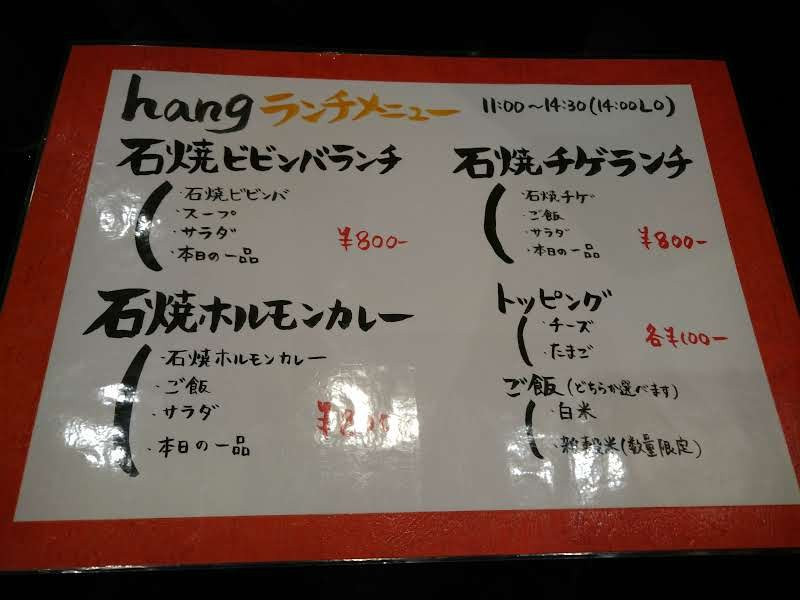 hang ランチメニュー 11:00～14:30(14:00LO)
石焼ビビンバランチ
・石焼ビビンバ
・スープ
・サラダ
・本日の一品
¥800-
石焼チゲランチ
・石焼チゲ
・ご飯
・サラダ
・本日の一品
¥800-
石焼ホルモンカレー
・石焼ホルモンカレー
・ご飯
・サラダ
・本日の一品
トッピング
・チーズ
・たまご
各¥100-
ご飯(どちらか選べます)
・白米
・雑穀米(数量限定)